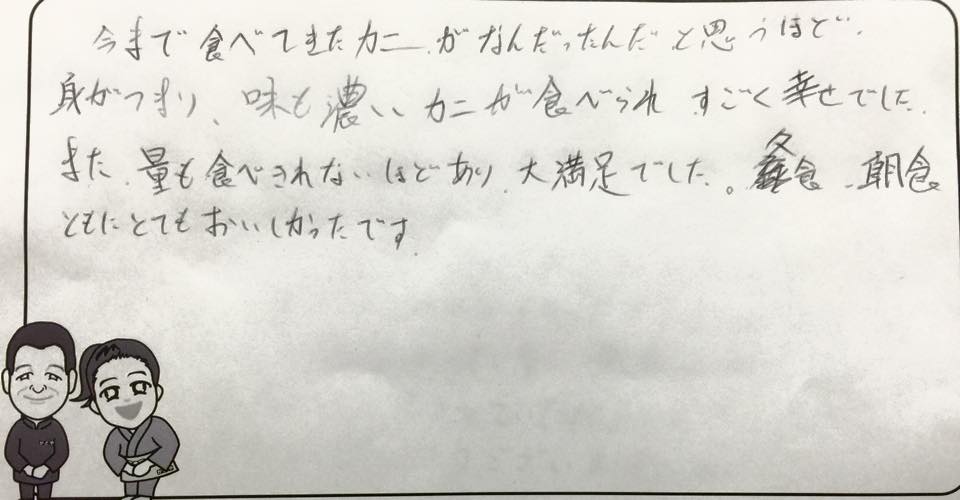 今まで食べてきたカニがなんだったんだと思うほど、
身がつまり、味も濃いカニが食べられ すごく幸せでした。
また、量も食べきれないほどあり、大満足でした。夕食、朝食
ともにとてもおいしかったです。